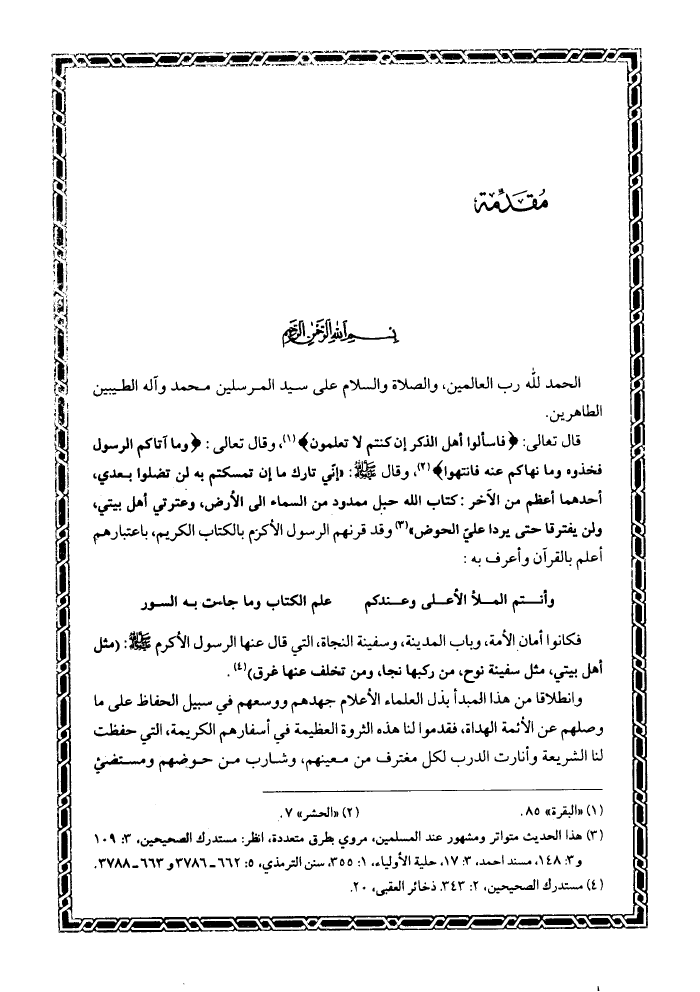 مُقَدِّمة
بسم الله الرحمن الرحيم
الحمد لله رب العالمين، والصلاة والسلام على سيد المرسلين محمد وآله الطيبين
الطاهرين.
قال تعالى: ﴿فاسألوا أهل الذكر إن كنتم لا تعلمون﴾(١)، وقال تعالى: ﴿وما آتاكم الرسول
فخذوه وما نهاكم عنه فانتهوا﴾(٢)، وقال ﷺ: «إنّي تارك ما إن تمسكتم به لن تضلوا بعدي،
أحدهما أعظم من الآخر: كتاب الله حبل ممدود من السماء الى الأرض، وعترتي أهل بيتي،
ولن يفترقا حتى يردا عليّ الحوض»(٣) وقد قرنهم الرسول الأكرم بالكتاب الكريم، باعتبارهم
أعلم بالقرآن وأعرف به:
وأنـتـم المـلأ الأعـلى وعـندكم علم الكتاب وما جاءت به السور
فكانوا أمان الأمة، وباب المدينة، وسفينة النجاة، التي قال عنها الرسول الأكرم ﷺ: (مثل
أهل بيتي، مثل سفينة نوح، من ركبها نجا، ومن تخلف عنها غرق)(٤).
وانطلاقا من هذا المبدأ بذل العلماء الأعلام جهدهم ووسعهم في سبيل الحفاظ على ما
وصلهم عن الأئمة الهداة، فقدموا لنا هذه الثروة العظيمة في أسفارهم الكريمة، التي حفظت
لنا الشريعة وأنارت الدرب لكل مغترف من معينهم، وشارب من حوضهم ومستضئ
(١) «البقرة» ٨٥. (٢) «الحشر» ٧.
(٣) هذا الحديث متواتر ومشهور عند المسلمين، مروي بطرق متعددة، انظر: مستدرك الصحيحين، ٣: ١٠٩
و٣: ١٤٨، مسند احمد، ٣: ١٧، حلية الأولياء، ١: ٣٥٥، سنن الترمذي، ٥: ٦٦٢ـ٣٧٨٦ و ٦٦٣ـ٣٧٨٨.
(٤) مستدرك الصحيحين، ٢: ٣٤٣. ذخائر العقبى، ٢٠.